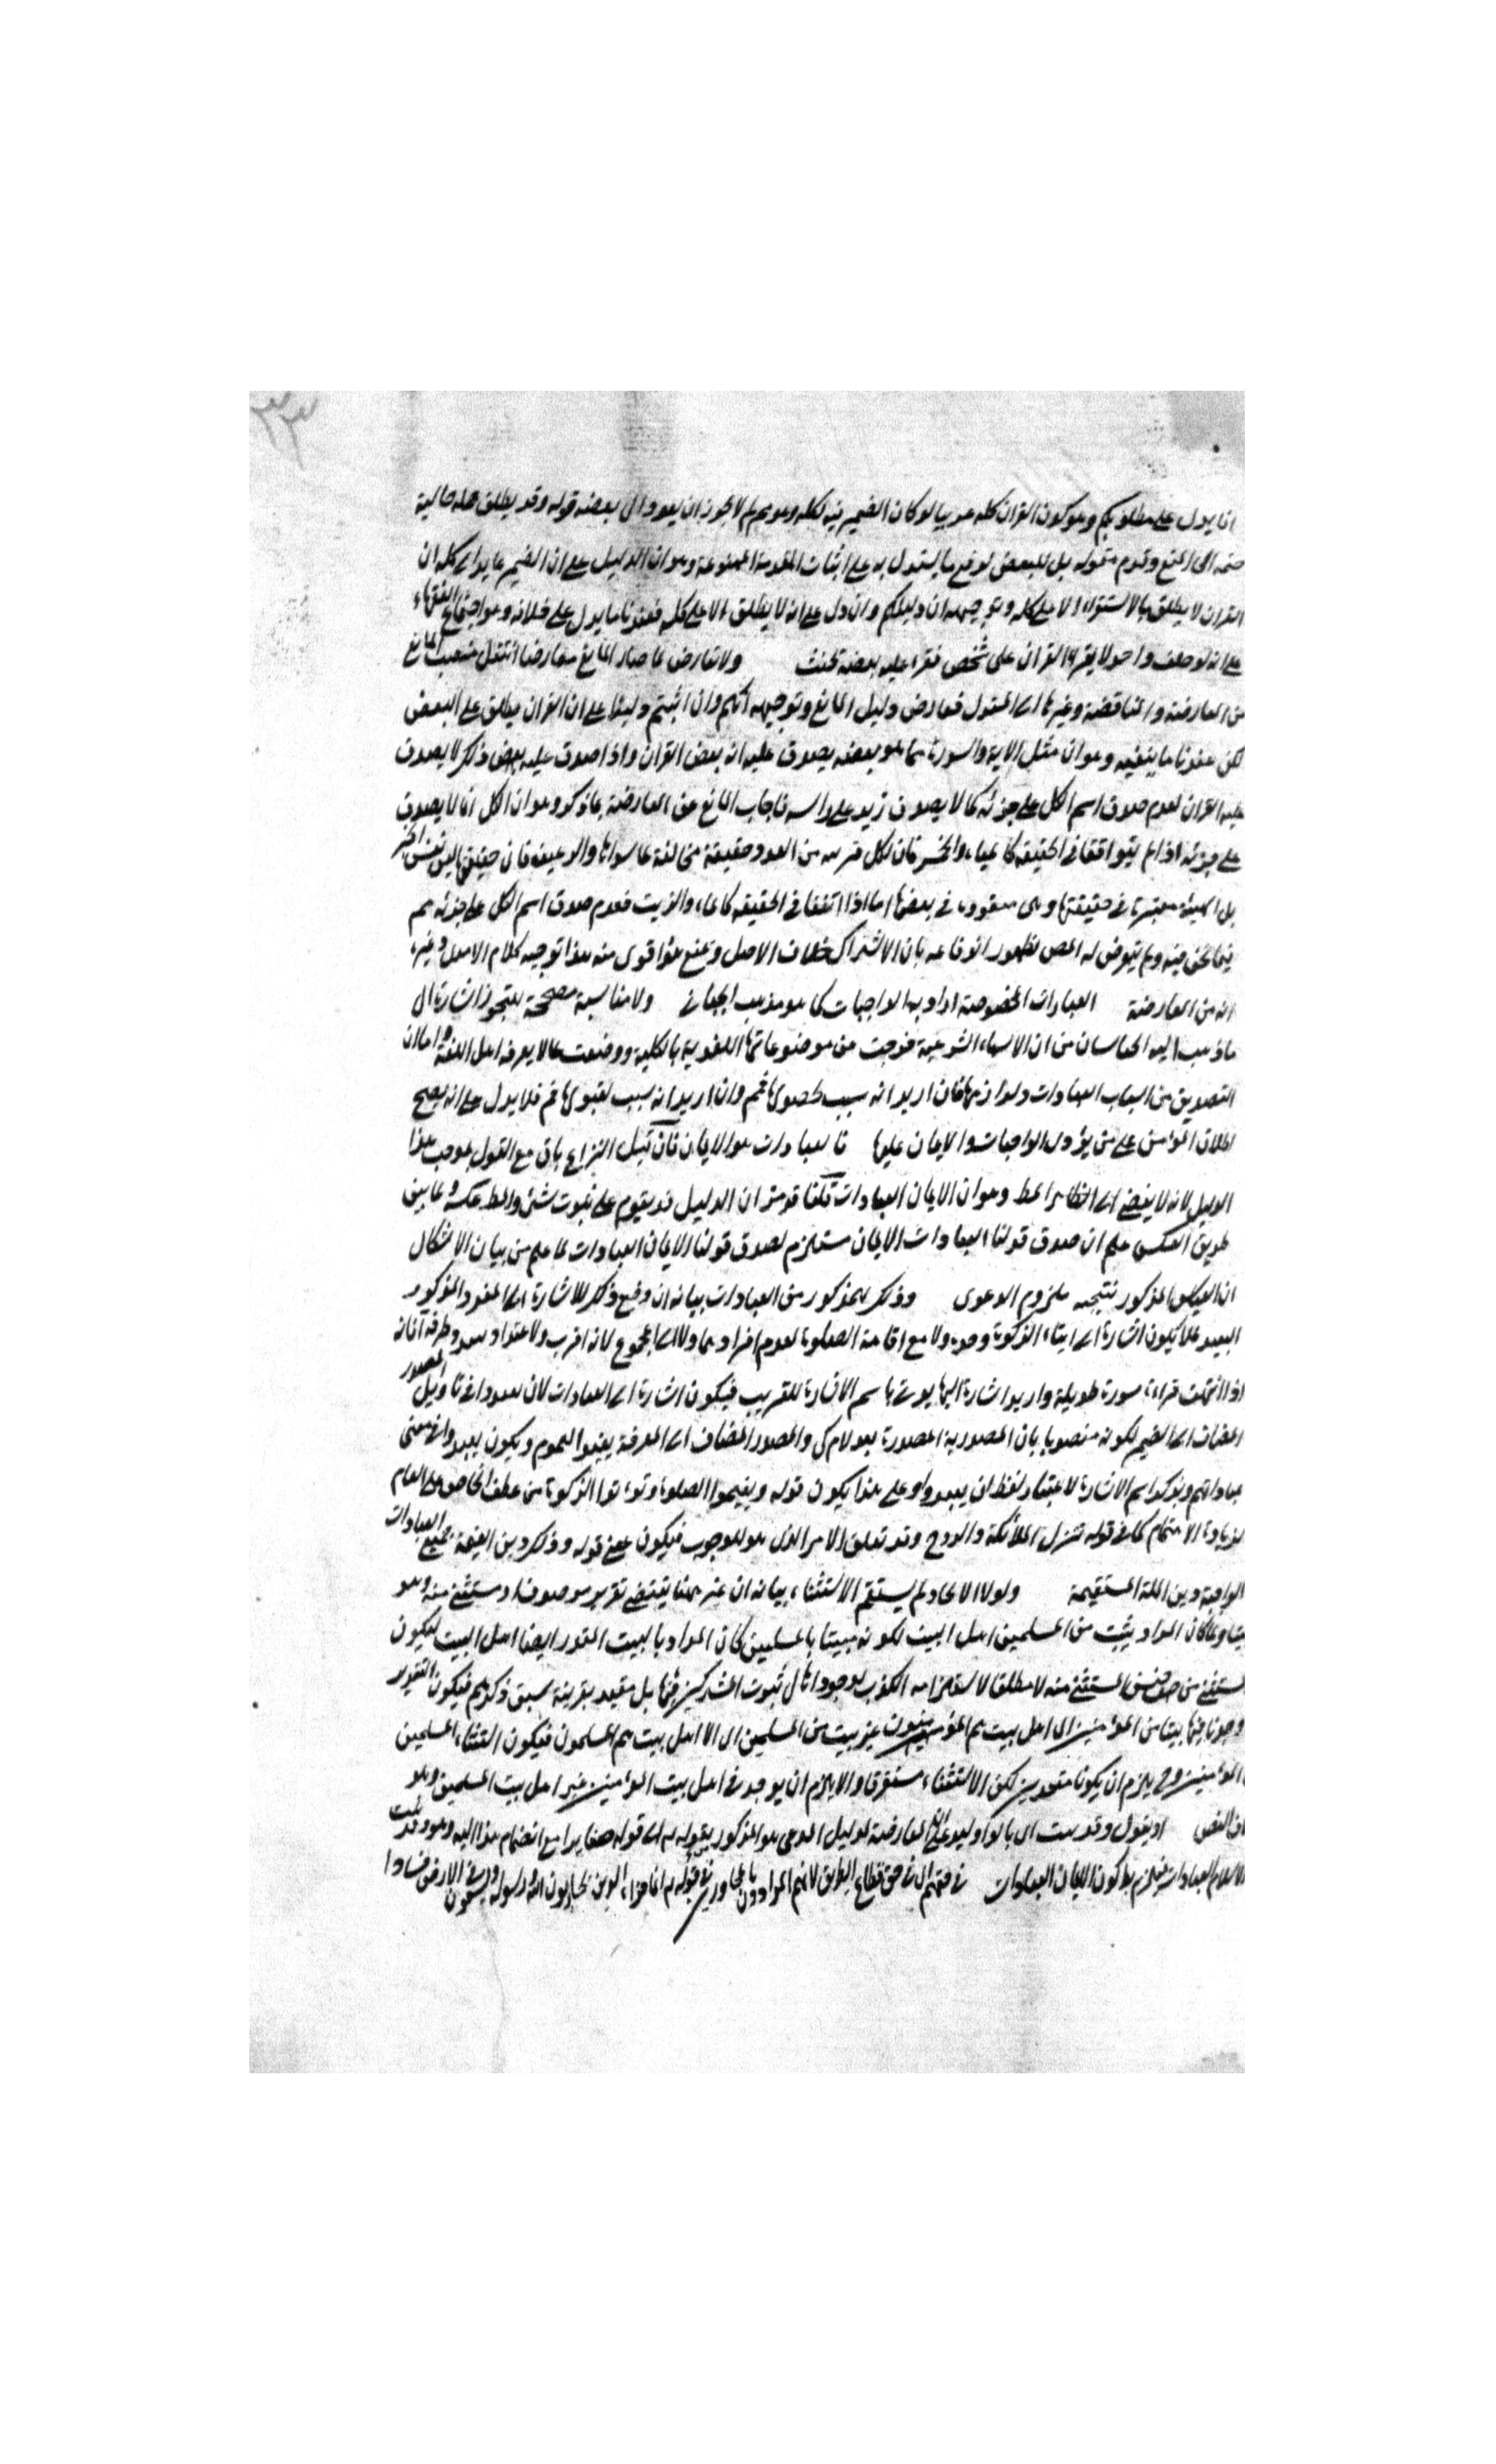 ٣٣
انما يدل على مطلوبكم وهو كون القران كله عربيا لو كان الضمير فيه لكله وهو مم لم لا يجوز ان يعود الى بعضه قوله وقد يطلق جملة حالية
المنع وقوله بل للبعض لدفع ما يستدل به على اثبات المقدمة الممنوعة وهو ان الدليل على ان الضمير عايد الى كله ان
القران لا يطلق بالاستقراء الا على كله وتوجيهه ان دليلكم وان دل على انه لا يطلق الا على كله فعندنا ما يدل على خلافه وهو اجماع الفقهاء
على انه لو حلف واحد لا يقرء القران على شخص فقرا عليه بعضه يحنث ولا تعارض لما صار المانع معارضا انتقل منصب المانع
من المعارضة والمناقضة وغيرها الى المعلل فعارض دليل المانع وتوجيهه انكم وان اثبتم دليلا على ان القران يطلق على البعض
لكن عندنا ما ينفيه وهو ان مثل الاية والسورة مما هو بعضه يصدق عليه انه بعض القران واذا صدق عليه بعض ذلك لا يصدق
عليه القران لعدم صدق اسم الكل على جزئه كما لا يصدق زيد على راسه فاجاب المانع عن المعارضة بما ذكر وهو ان الكل انما لا يصدق
على جزئه اذا لم يتوافقا في الحقيقة كالمياء والخمسة فان لكل مرتبة من العدد حقيقة مخالفة لما سواها والرغيف فان حقيقته ليس نفس الخبز
بل الهيئة معتبرة في حقيقتها وهى مفقودة في بعضها اما اذا اتفقا في الحقيقة كالماء والزيت فعدم صدق اسم الكل على جزئه مم
فيما نحن فيه ولم يتعرض له المص لظهور اندفاعه بان الاشتراك خلاف الاصل وتمنع هذا قوى منه هذا توجيه كلام الاصل وغيره
انه من المعارضة العبادات المخصوصة اراد بها الواجبات كما هو مذهب الجبائي ولا مناسبة مصححة للتجوز اشارة الى
ما ذهب اليه من ان الاسماء الشرعية خرجت من موضوعاتها اللغوية بالكلية ووضعت لما لا يعرفه اهل اللغة واما ان
التصديق من اسباب العبادات ولوازمها فان اريد انه سبب لحصولها فمم وان اريد انه سبب لقبولها فم فلا يدل على انه يصح
اطلاق المؤمن على من يؤدى الواجبات والايمان عليها فالعبادات هو الايمان فان قيل النزاع باق مع القول بموجب هذا
الدليل لانه لا يفضي الى الظاهر المط وهو ان الايمان العبادات قلنا قد مر ان الدليل قد يقوم على ثبوت شئ والمط عكسه ولما بين
طريق العكس علم ان صدق قولنا العبادات الايمان مستلزم لصدق قولنا الايمان العبادات لما علم من بيان الاشكال
ان العكس المذكور نتيجه ملزوم الدعوى وذلك المذكور من العبادات بيانه ان وضع ذلك للاشارة الى المفرد المذكور
البعيد فلا يكون اشارة الى ايتاء الزكوة وحده ولا مع اقامة الصلوة لعدم افرادهما ولا الى المجموع لانه اقرب ولاعتداد
اذا انتهت قراءة سورة طويلة واريد اشارة اليها يوتى باسم الاشارة للقريب فيكون اشارة الى العبادات لان ليعبدوا في تاويل المصدر
المضاف الى الضمير لكونه منصوبا بان المصدرية المصدرة بعد لام كى والمصدر المضاف الى المعرفة يفيد العموم ويكون ليعبدوا في معنى
عباداتهم وتذكير اسم الاشارة لاعتبار لفظ ان يعبدوا وعلى هذا يكون قوله ويقيموا الصلوة ويؤتوا الزكوة من عطف الخاص على العام
لزيادة الاهتمام كما في قوله تنزل الملائكة والروح وقد تعلق الامر الذى هو للوجوب فيكون معنى قوله وذلك دين القيمة جميع العبادات
الواجبة دين الملة المستقيمة ولولا الاتحاد لم يستقم الاستثناء بيانه ان غير ههنا يقتضي تقرير موصوف او مستثنى منه وهو
بيتا ولما كان المراد ببيت من المسلمين اهل البيت لكونه مبينا بالمسلمين كان المراد بالبيت المقدر ايضا اهل البيت ليكون
المستثنى من جنس المستثنى منه لا مطلقا لاستلزامه الكذب بل مقيد بقرينة سبق ذكرهم فيكون التقدير
وجدنا فيها بيتا من المؤمنين اى اهل بيت هم المؤمنون غير بيت من المسلمين اى الا اهل بيت هم المسلمون فيكون استثناء المسلمين
المؤمنين وح يلزم ان يكونا متحدين لكن الاستثناء مستغرقا والا يلزم ان يوجد في اهل بيت المؤمنين غير اهل بيت المسلمين وهو
او يقول المعارضة لدليل المدعى هو المذكور بقوله مع انضمام هذا اليه وهو وقد ثبت
الاسلام العبادات فيلزم كون الايمان العبادات في حقهم اى في حق قطاع الطريق لانهم المرادون في قوله انما جزاء الذين يحاربون الله ورسوله ويسعون في الارض فسادا